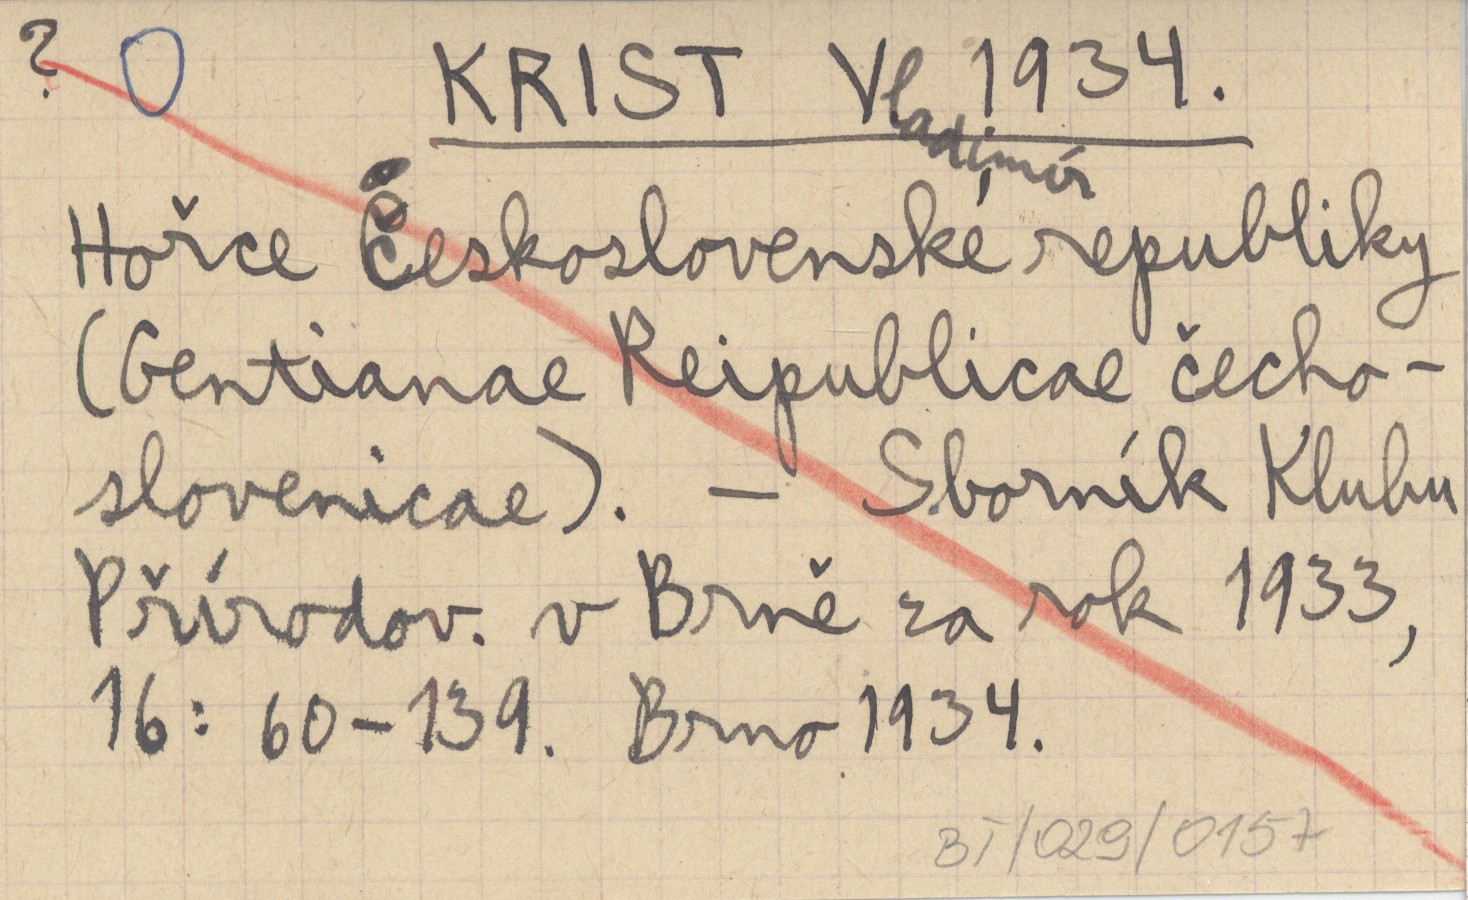 ? O
KRIST Vladimír 1934.
Hořce Československé republiky
(Gentianae Reipublicae čecho-
slovenicae). — Sborník Klubu
Přírodov. v Brně za rok 1933,
16: 60-139. Brno 1934.
BT/029/0157